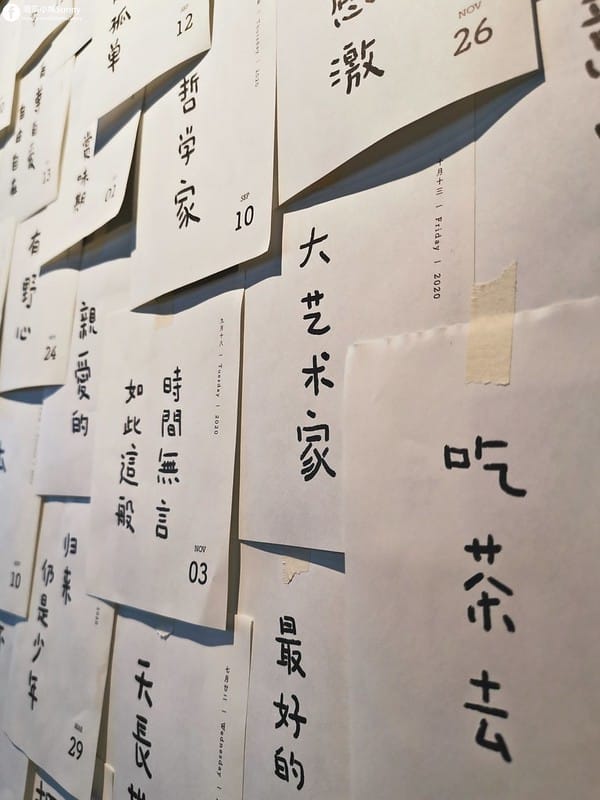 孤单
12
Thursday | 2020
感激
NOV
26
13
赏味期
02
哲学家
SEP
10
十月十三 | Friday | 2020
大艺术家
有野心
24
親愛的
九月十八 | Tuesday | 2020
時間無言
如此這般
NOV
03
吃茶去
10
归来
仍是少年
MAR
29
2020
七月廿二 | Wednesday |
天長
最好的